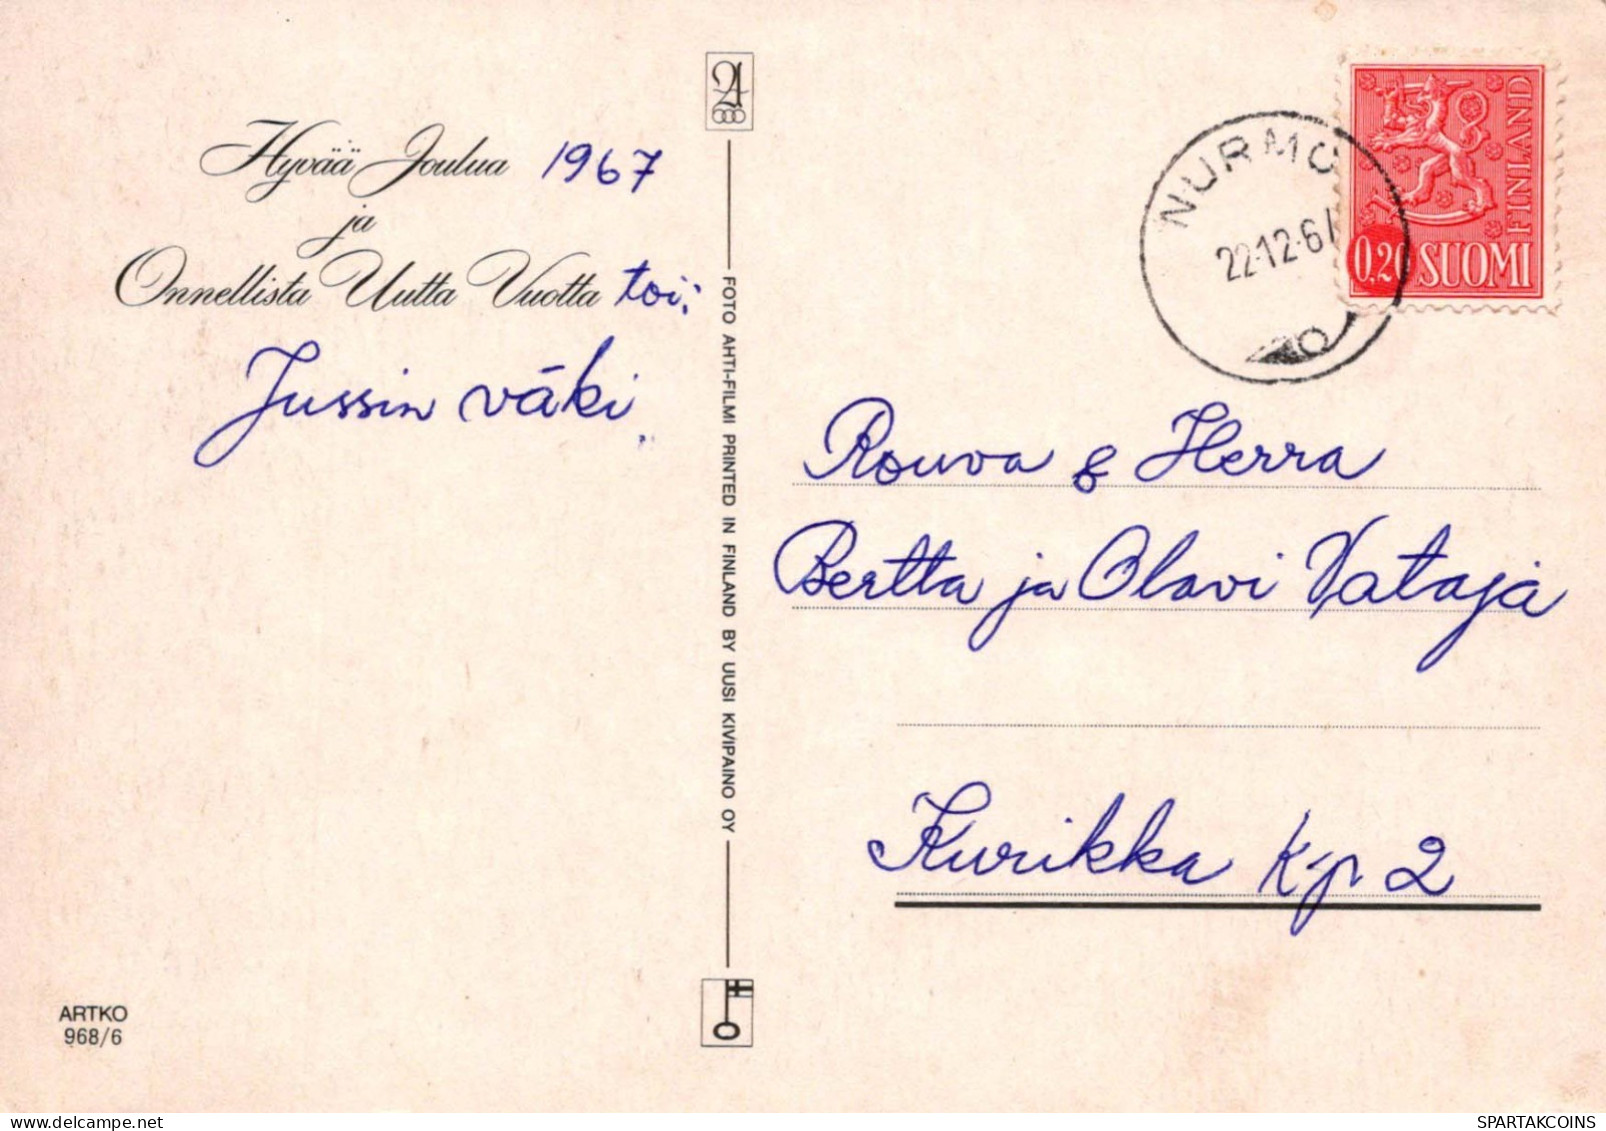 Hyvää Joulua 1967
ja
Onnellista Uutta Vuotta toi:
Jussin väki.
FOTO AHTI-FILMI PRINTED IN FINLAND BY UUSI KIVIPAINO OY
ARTKO
968/6
NURMO
22.12.67
FINLAND
0,20 SUOMI
Rouva & Herra
Bertta ja Olavi Vataja
Kurikka k-p 2
www.delcampe.net
SPARTAKCOINS